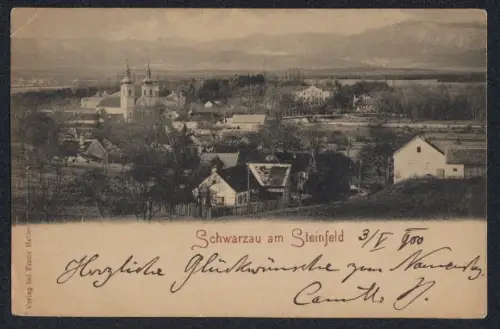 Schwarzau am Steinfeld 3/V 900
Herzliche Glückwünsche zum Namenstag
Camillo
Verlag bei Franz